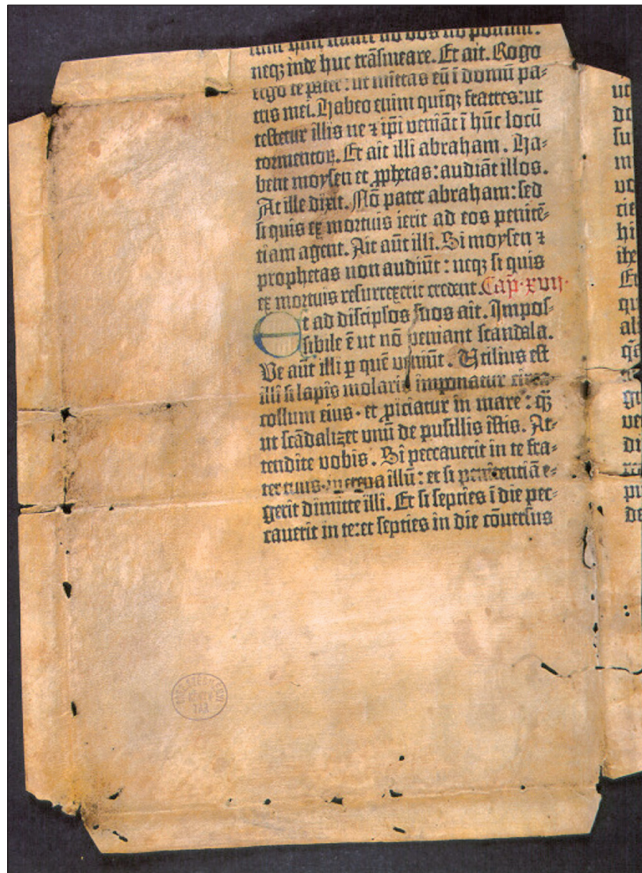 neqꝫ inde huc trāsmeare. Et ait. Rogo
ergo te pater: ut mittas eū ī domū pa-
tris mei. Habeo enim quinqꝫ fratres: ut
testetur illis ne ⁊ ip̄i veniāt ī hūc locū
tormentoꝝ. Et ait illi abraham. Ha-
bent moysen et ꝓphetas: audiāt illos.
At ille dixit. Nō pater abraham: sed
si quis ex mortuis ierit ad eos penitē-
tiam agent. Ait aūt illi. Si moysen ⁊
prophetas non audiūt: neqꝫ si quis
ex mortuis resurrexerit credent. Cap. xvii.
Et ad discipl'os suos ait. Impos-
sibile ē ut nō veniant scandala.
Ve aūt illi ꝑ quē veniūt. Utilius est
illi si lapis molaris imponatur
collum eius. et ꝓiciatur in mare: qꝫ
ut scādalizet unū de pusillis istis. At-
tendite vobis. Si peccaverit in te fra-
ter tuus increpa illū: et si penitentiā e-
gerit dimitte illi. Et si septies ī die pec-
caverit in te: et septies in die cōversus